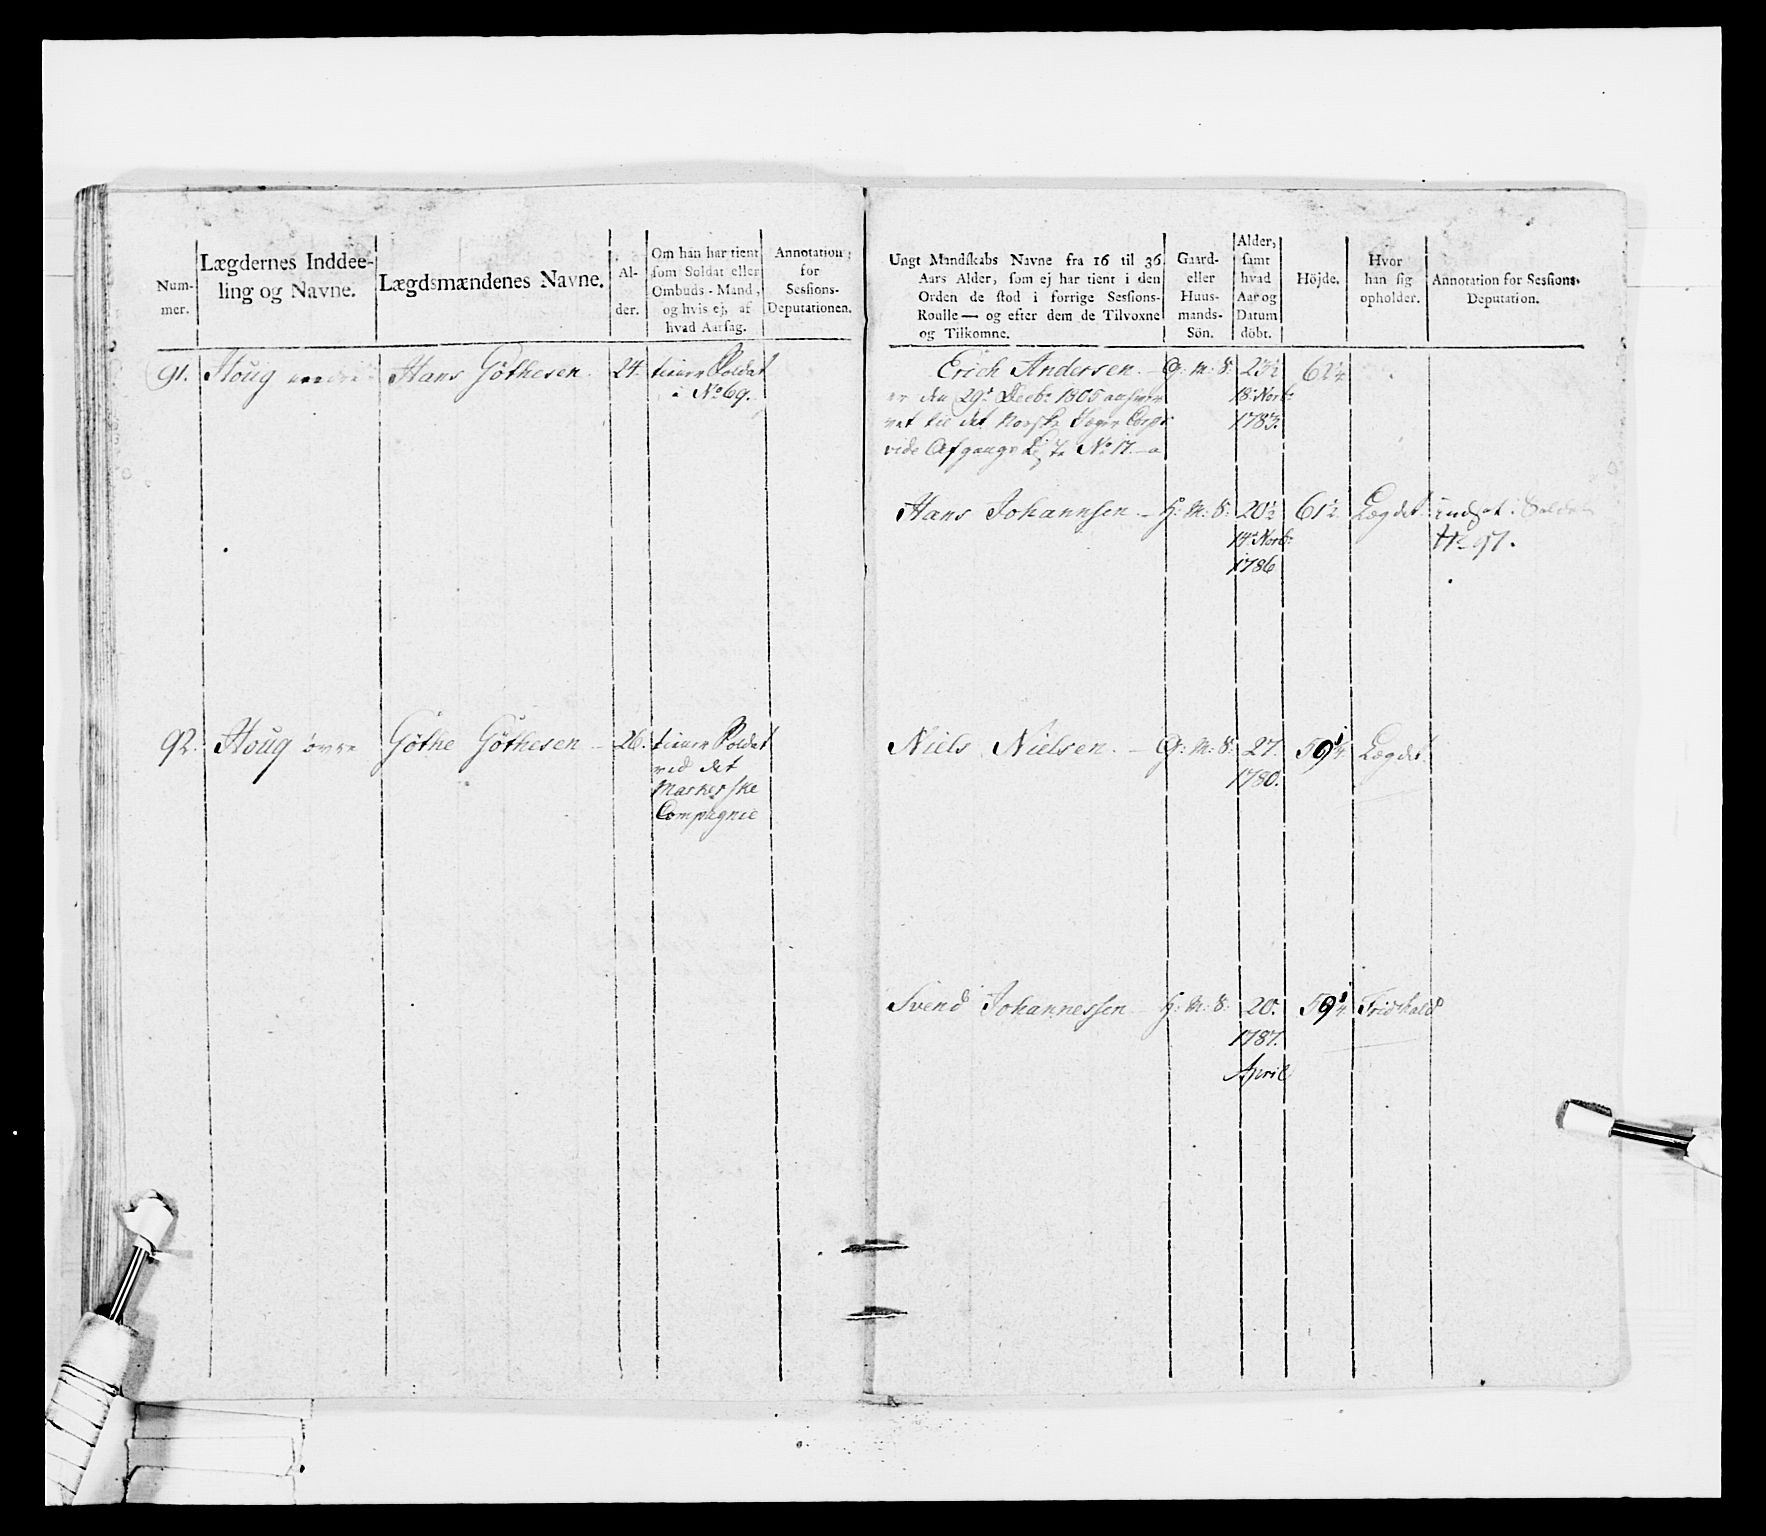 Num-
mer.
Lægdernes Inddee-
ling og Navne.
Lægdsmændenes Navne.
Al-
der.
Om han har tient
som Soldat eller
Ombuds-Mand,
og hvis ej, af
hvad Aarsag.
Annotation
for
Sessions-
Deputationen.
91. Houg Hans Göthesen. 24. tiener Soldat
i No 69.
92. Houg övre Göthe Göthesen 26. tiener Soldat
ved det
Markerske
Compagnie
Ungt Mandskabs Navne fra 16 til 36
Aars Alder, som ej har tient i den
Orden de stod i forrige Sessions-
Roulle— og efter dem de Tilvoxne
og Tilkomne.
Gaard-
eller
Huus-
mands-
Sön.
Alder,
samt
hvad
Aar og
Datum
döbt.
Höjde.
Hvor
han sig
opholder.
Annotation for Sessions-
Deputation.
Erich Andersen. G: M: S: 23½ 62¼
er den 29de Decbr 1805 18 Novbr
vet til det Norske Jæger Corps 1783.
vide Afgangs Liste No 17
Hans Johannsen H: M: S: 20½ 61½ Lægdet indsat i Solde
14 Novbr No 97.
1786
Niels Nielsen. G: M: S: 27. 59¼ Lægdet
1780.
Svend Johannessen H: M: S: 20. 59¼ Fridrhald
1787.
April